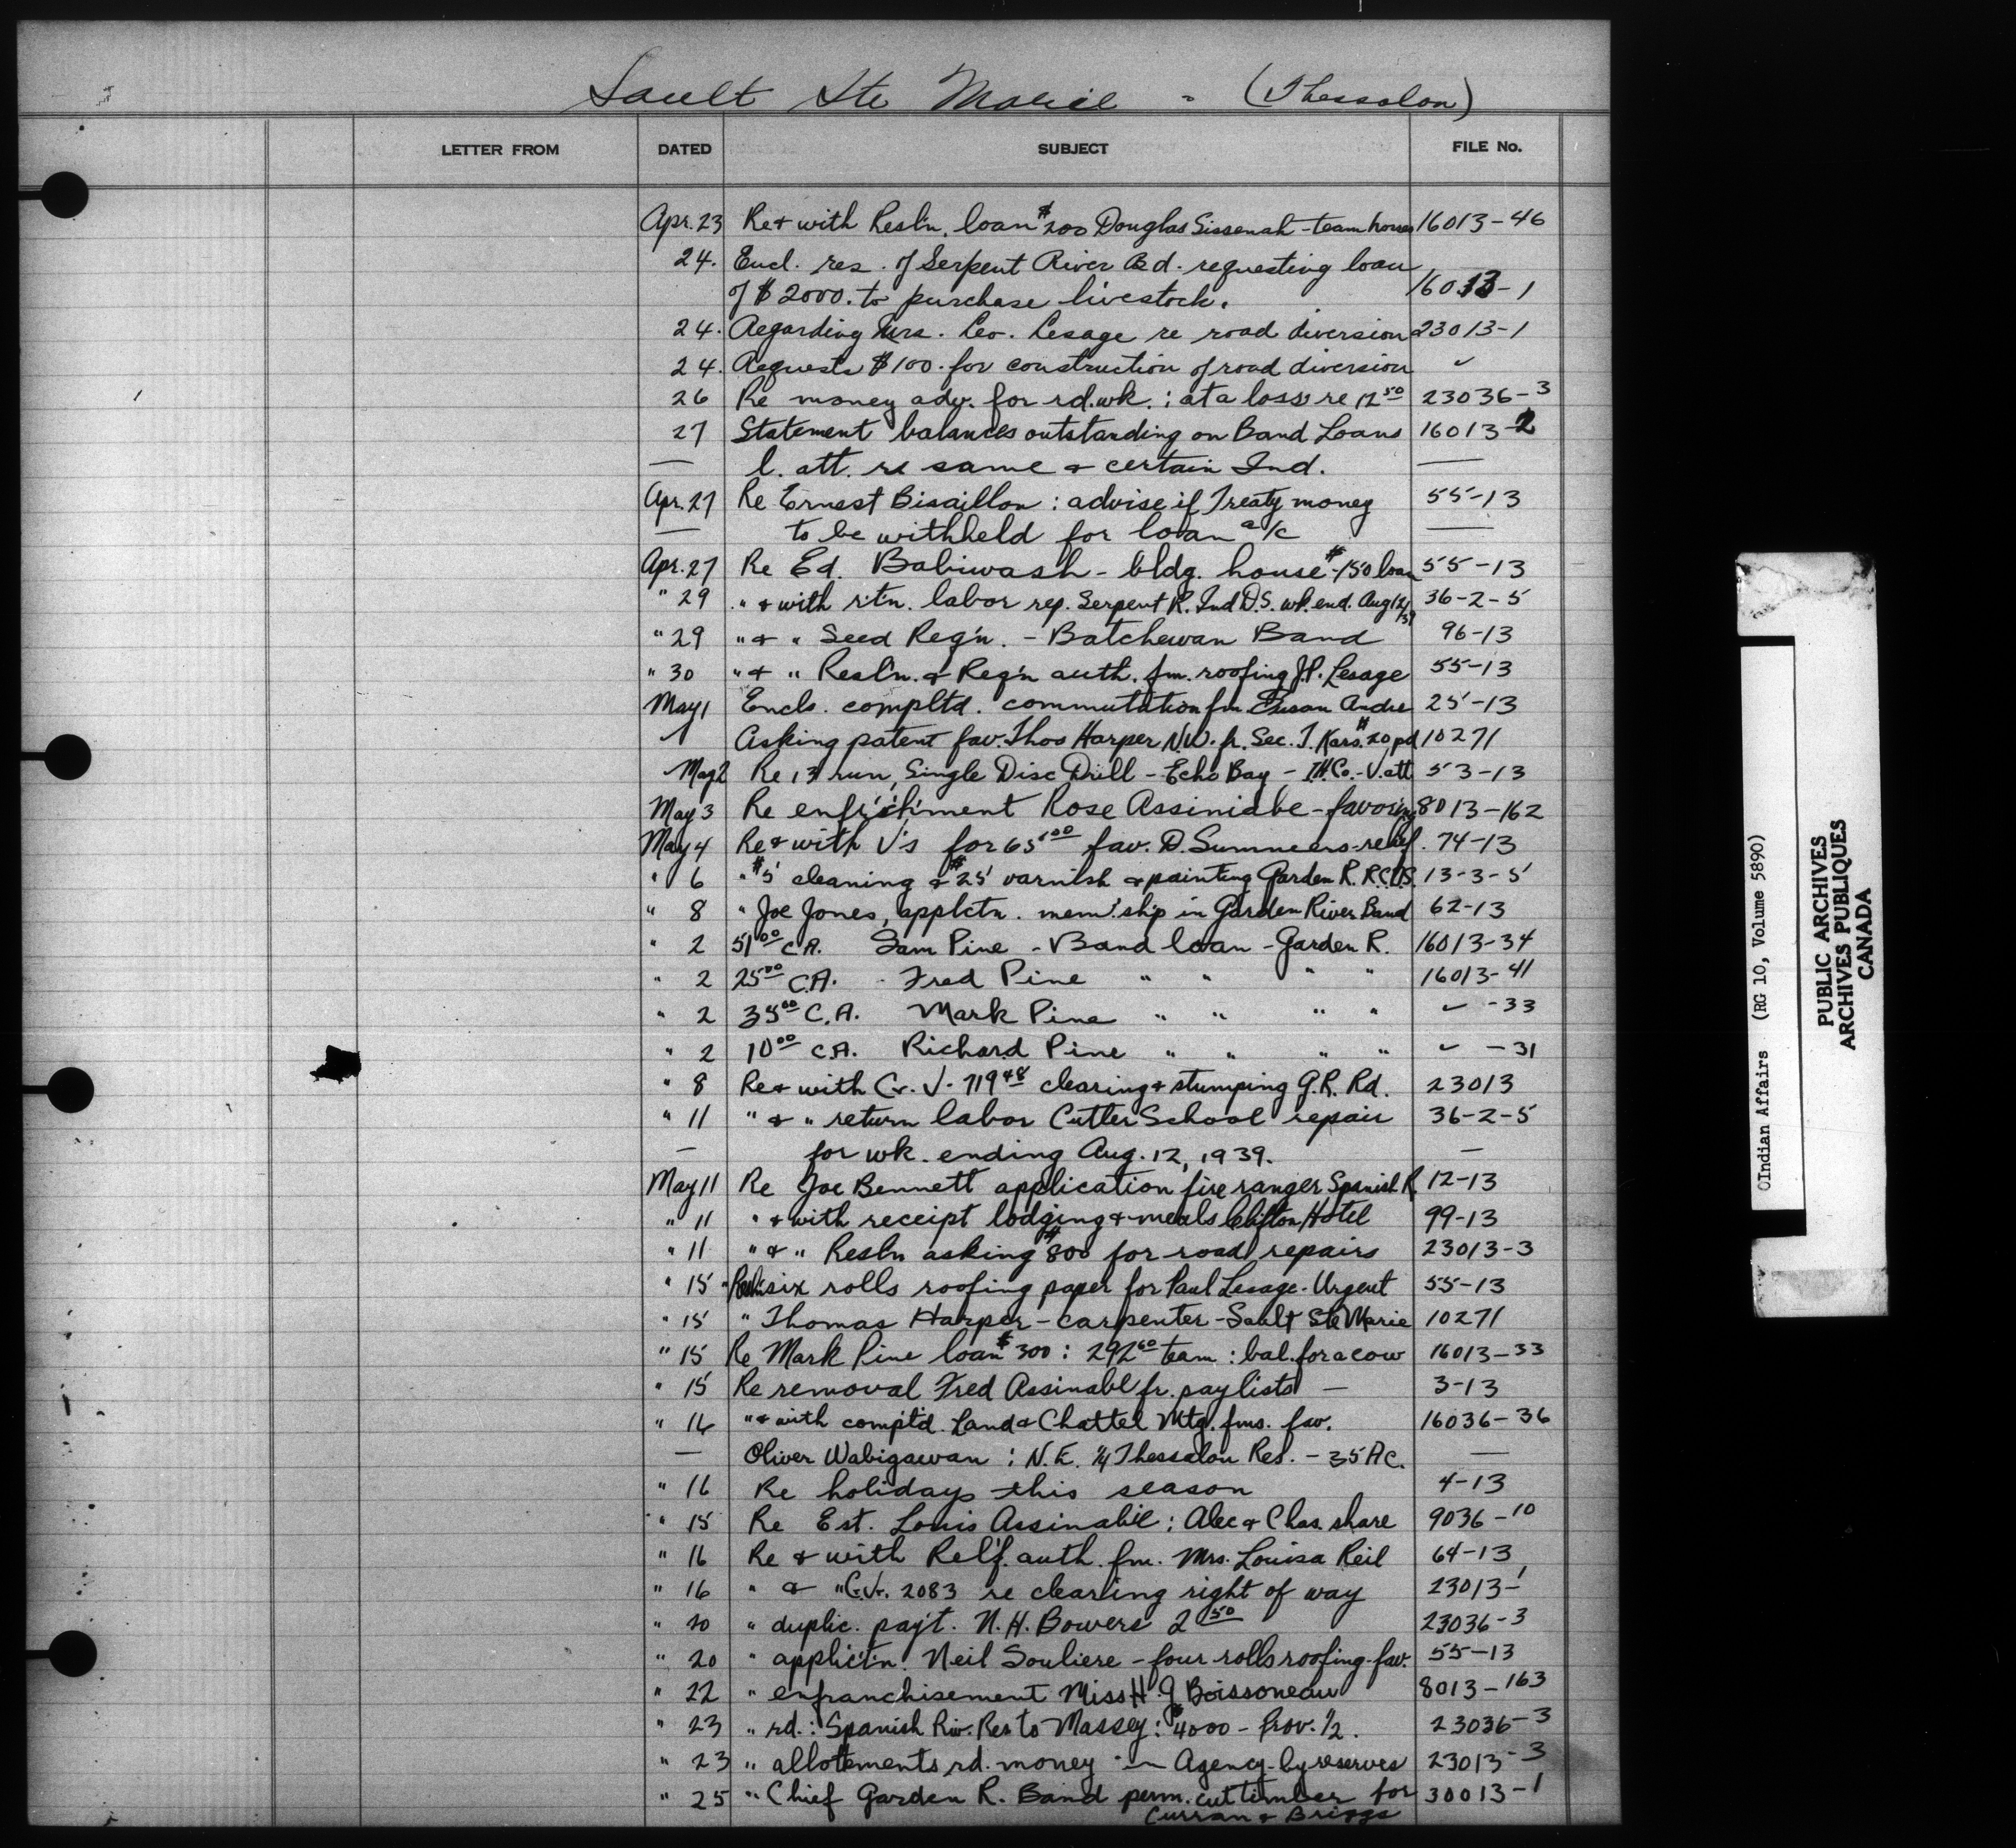 Sault Ste Marie - (Thessalon)
LETTER FROM DATED SUBJECT FILE No.
Apr. 23 Re & with Resl'n. loan $200 Douglas Sissenah - team horses 16013-46
24. Encl. res. of Serpent River Bd. requesting loan
of $2000. to purchase livestock. 16013-1
24. Regarding Mrs. Leo. Lesage re road diversion 23013-1
24. Requests $100. for construction of road diversion ✓
26 Re money adv. for rd. wk. : at a loss re 12 50 23036-3
27 Statement balances outstanding on Band Loans 16013-2
— l. att. re same & certain Ind. —
Apr. 27 Re Ernest Bisaillon : advise if Treaty money 55-13
— to be withheld for loan a/c —
Apr. 27 Re Ed. Babiwash - bldg. house - $150 loan 55-13
" 29 " & with rt'n. labor rep. Serpent R. Ind D.S. wk. end. Aug 12/39 36-2-5
" 29 " & " Seed Req'n. - Batchewan Band 96-13
" 30 " & " Resl'n. & Req'n auth. fm. roofing J.P. Lesage 55-13
May 1 Encls. compltd. commutation fm Susan Andre 25-13
Asking patent fav. Thos Harper N.W. fr. Sec. T. Kars. $20 pd 10271
May 2 Re 13 run Single Disc Drill - Echo Bay - I.H.Co. - V. att 53-13
May 3 Re enfr'ch'ment Rose Assiniabe - favoring 8013-162
May 4 Re & with V's for 65 00 fav. D. Summers - relief. 74-13
" 6 " $5 cleaning & $25 varnish & painting Garden R. R.C.D.S. 13-3-5
" 8 " Joe Jones, applctn. mem'ship in Garden River Band 62-13
" 2 51 00 C.A. Sam Pine - Band loan - Garden R. 16013-34
" 2 25 00 C.A. - Fred Pine " " " " 16013-41
" 2 35 00 C.A. Mark Pine " " " " ✓ -33
" 2 10 00 C.A. Richard Pine " " " " ✓ -31
" 8 Re & with G. V. 719 48 clearing & stumping G.R. Rd. 23013
" 11 " & " return labor Cutler School repair 36-2-5
— for wk. ending Aug. 12, 1939. —
May 11 Re Joe Bennett application fire ranger Spanish R. 12-13
" 11 " & with receipt lodging & meals Clifton Hotel 99-13
" 11 " & " Resln asking $800 for road repairs 23013-3
" 15 six rolls roofing paper for Paul Lesage - Urgent 55-13
" 15 " Thomas Harper - carpenter - Sault Ste Marie 10271
" 15 Re Mark Pine loan $300 : 292 60 team : bal. for a cow 16013-33
" 15 Re removal Fred Assinabe fr. pay lists — 3-13
" 16 " & with compt'd. Land & Chattel Mtg. fms. fav. 16036-36
— Oliver Wabigawan : N.E. 1/4 Thessalon Res. - 35 Ac. —
" 16 Re holidays this season 4-13
" 15 Re Est. Louis Assinabie : Alec & Chas. share 9036-10
" 16 Re & with Relf. auth. fm. Mrs. Louisa Reil 64-13
" 16 " & " G.V. 2083 re clearing right of way 23013-1
" 20 " duplic. pay't. N.H. Bowers 2 50 23036-3
" 20 " applic't'n. Neil Souliere - four rolls roofing - fav. 55-13
" 22 " enfranchisement Miss H. J Boissoneau 8013-163
" 23 " rd. : Spanish Riv. Res to Massey : $4000 - Prov. 1/2. 23036-3
" 23 " allottements rd. money in Agency - by reserves 23013-3
" 25 " Chief Garden R. Band perm. cut timber for 30013-1
Curran & Briggs
Indian Affairs (RG 10, Volume 5890)
PUBLIC ARCHIVES
ARCHIVES PUBLIQUES
CANADA